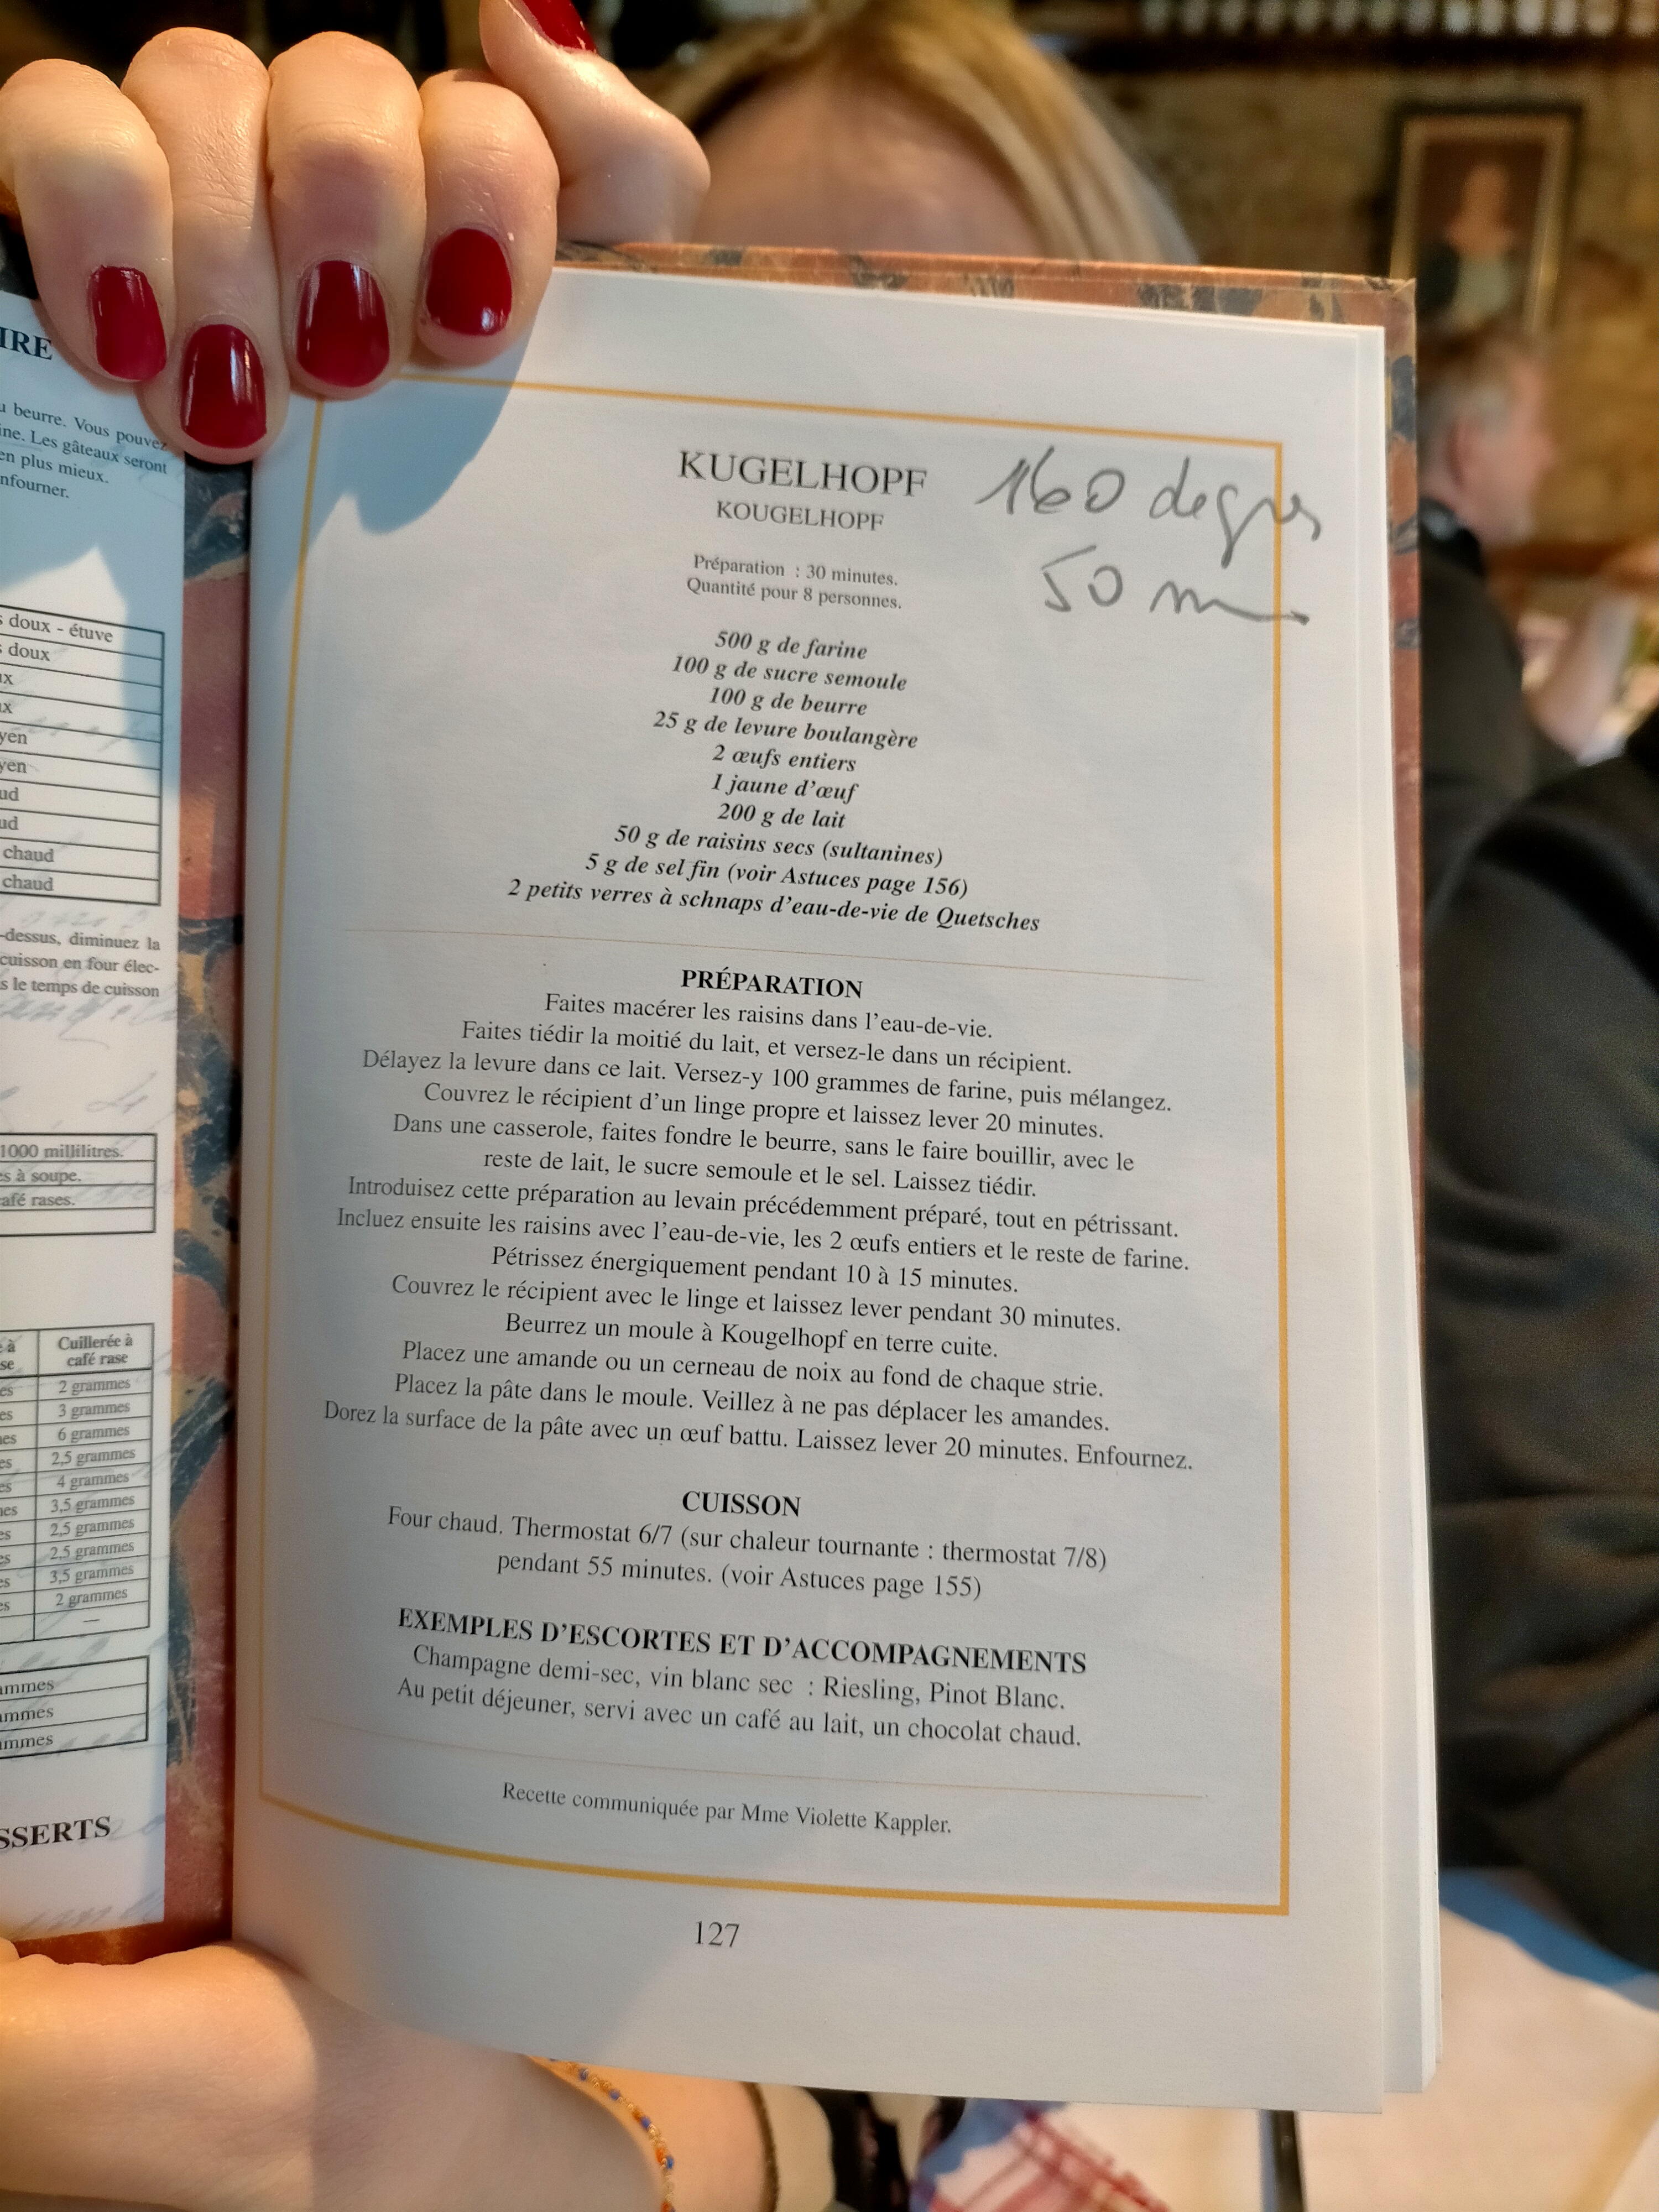 IRE
u beurre. Vous pouvez
ine. Les gâteaux seront
en plus mieux.
nfourner.
s doux - étuve
s doux
ux
ux
yen
yen
ud
ud
chaud
chaud
-dessus, diminuez la
cuisson en four élec-
s le temps de cuisson
1000 millilitres.
es à soupe.
afé rases.
e à
se
Cuillerée à
café rase
es 2 grammes
es 3 grammes
es 6 grammes
es 2,5 grammes
es 4 grammes
es 3,5 grammes
es 2,5 grammes
es 2,5 grammes
es 3,5 grammes
es 2 grammes
—
ammes
ammes
ammes
SSERTS
KUGELHOPF
KOUGELHOPF
160 degrés
50 m
Préparation : 30 minutes.
Quantité pour 8 personnes.
500 g de farine
100 g de sucre semoule
100 g de beurre
25 g de levure boulangère
2 œufs entiers
1 jaune d'œuf
200 g de lait
50 g de raisins secs (sultanines)
5 g de sel fin (voir Astuces page 156)
2 petits verres à schnaps d'eau-de-vie de Quetsches
PRÉPARATION
Faites macérer les raisins dans l'eau-de-vie.
Faites tiédir la moitié du lait, et versez-le dans un récipient.
Délayez la levure dans ce lait. Versez-y 100 grammes de farine, puis mélangez.
Couvrez le récipient d'un linge propre et laissez lever 20 minutes.
Dans une casserole, faites fondre le beurre, sans le faire bouillir, avec le
reste de lait, le sucre semoule et le sel. Laissez tiédir.
Introduisez cette préparation au levain précédemment préparé, tout en pétrissant.
Incluez ensuite les raisins avec l'eau-de-vie, les 2 œufs entiers et le reste de farine.
Pétrissez énergiquement pendant 10 à 15 minutes.
Couvrez le récipient avec le linge et laissez lever pendant 30 minutes.
Beurrez un moule à Kougelhopf en terre cuite.
Placez une amande ou un cerneau de noix au fond de chaque strie.
Placez la pâte dans le moule. Veillez à ne pas déplacer les amandes.
Dorez la surface de la pâte avec un œuf battu. Laissez lever 20 minutes. Enfournez.
CUISSON
Four chaud. Thermostat 6/7 (sur chaleur tournante : thermostat 7/8)
pendant 55 minutes. (voir Astuces page 155)
EXEMPLES D'ESCORTES ET D'ACCOMPAGNEMENTS
Champagne demi-sec, vin blanc sec : Riesling, Pinot Blanc.
Au petit déjeuner, servi avec un café au lait, un chocolat chaud.
Recette communiquée par Mme Violette Kappler.
127